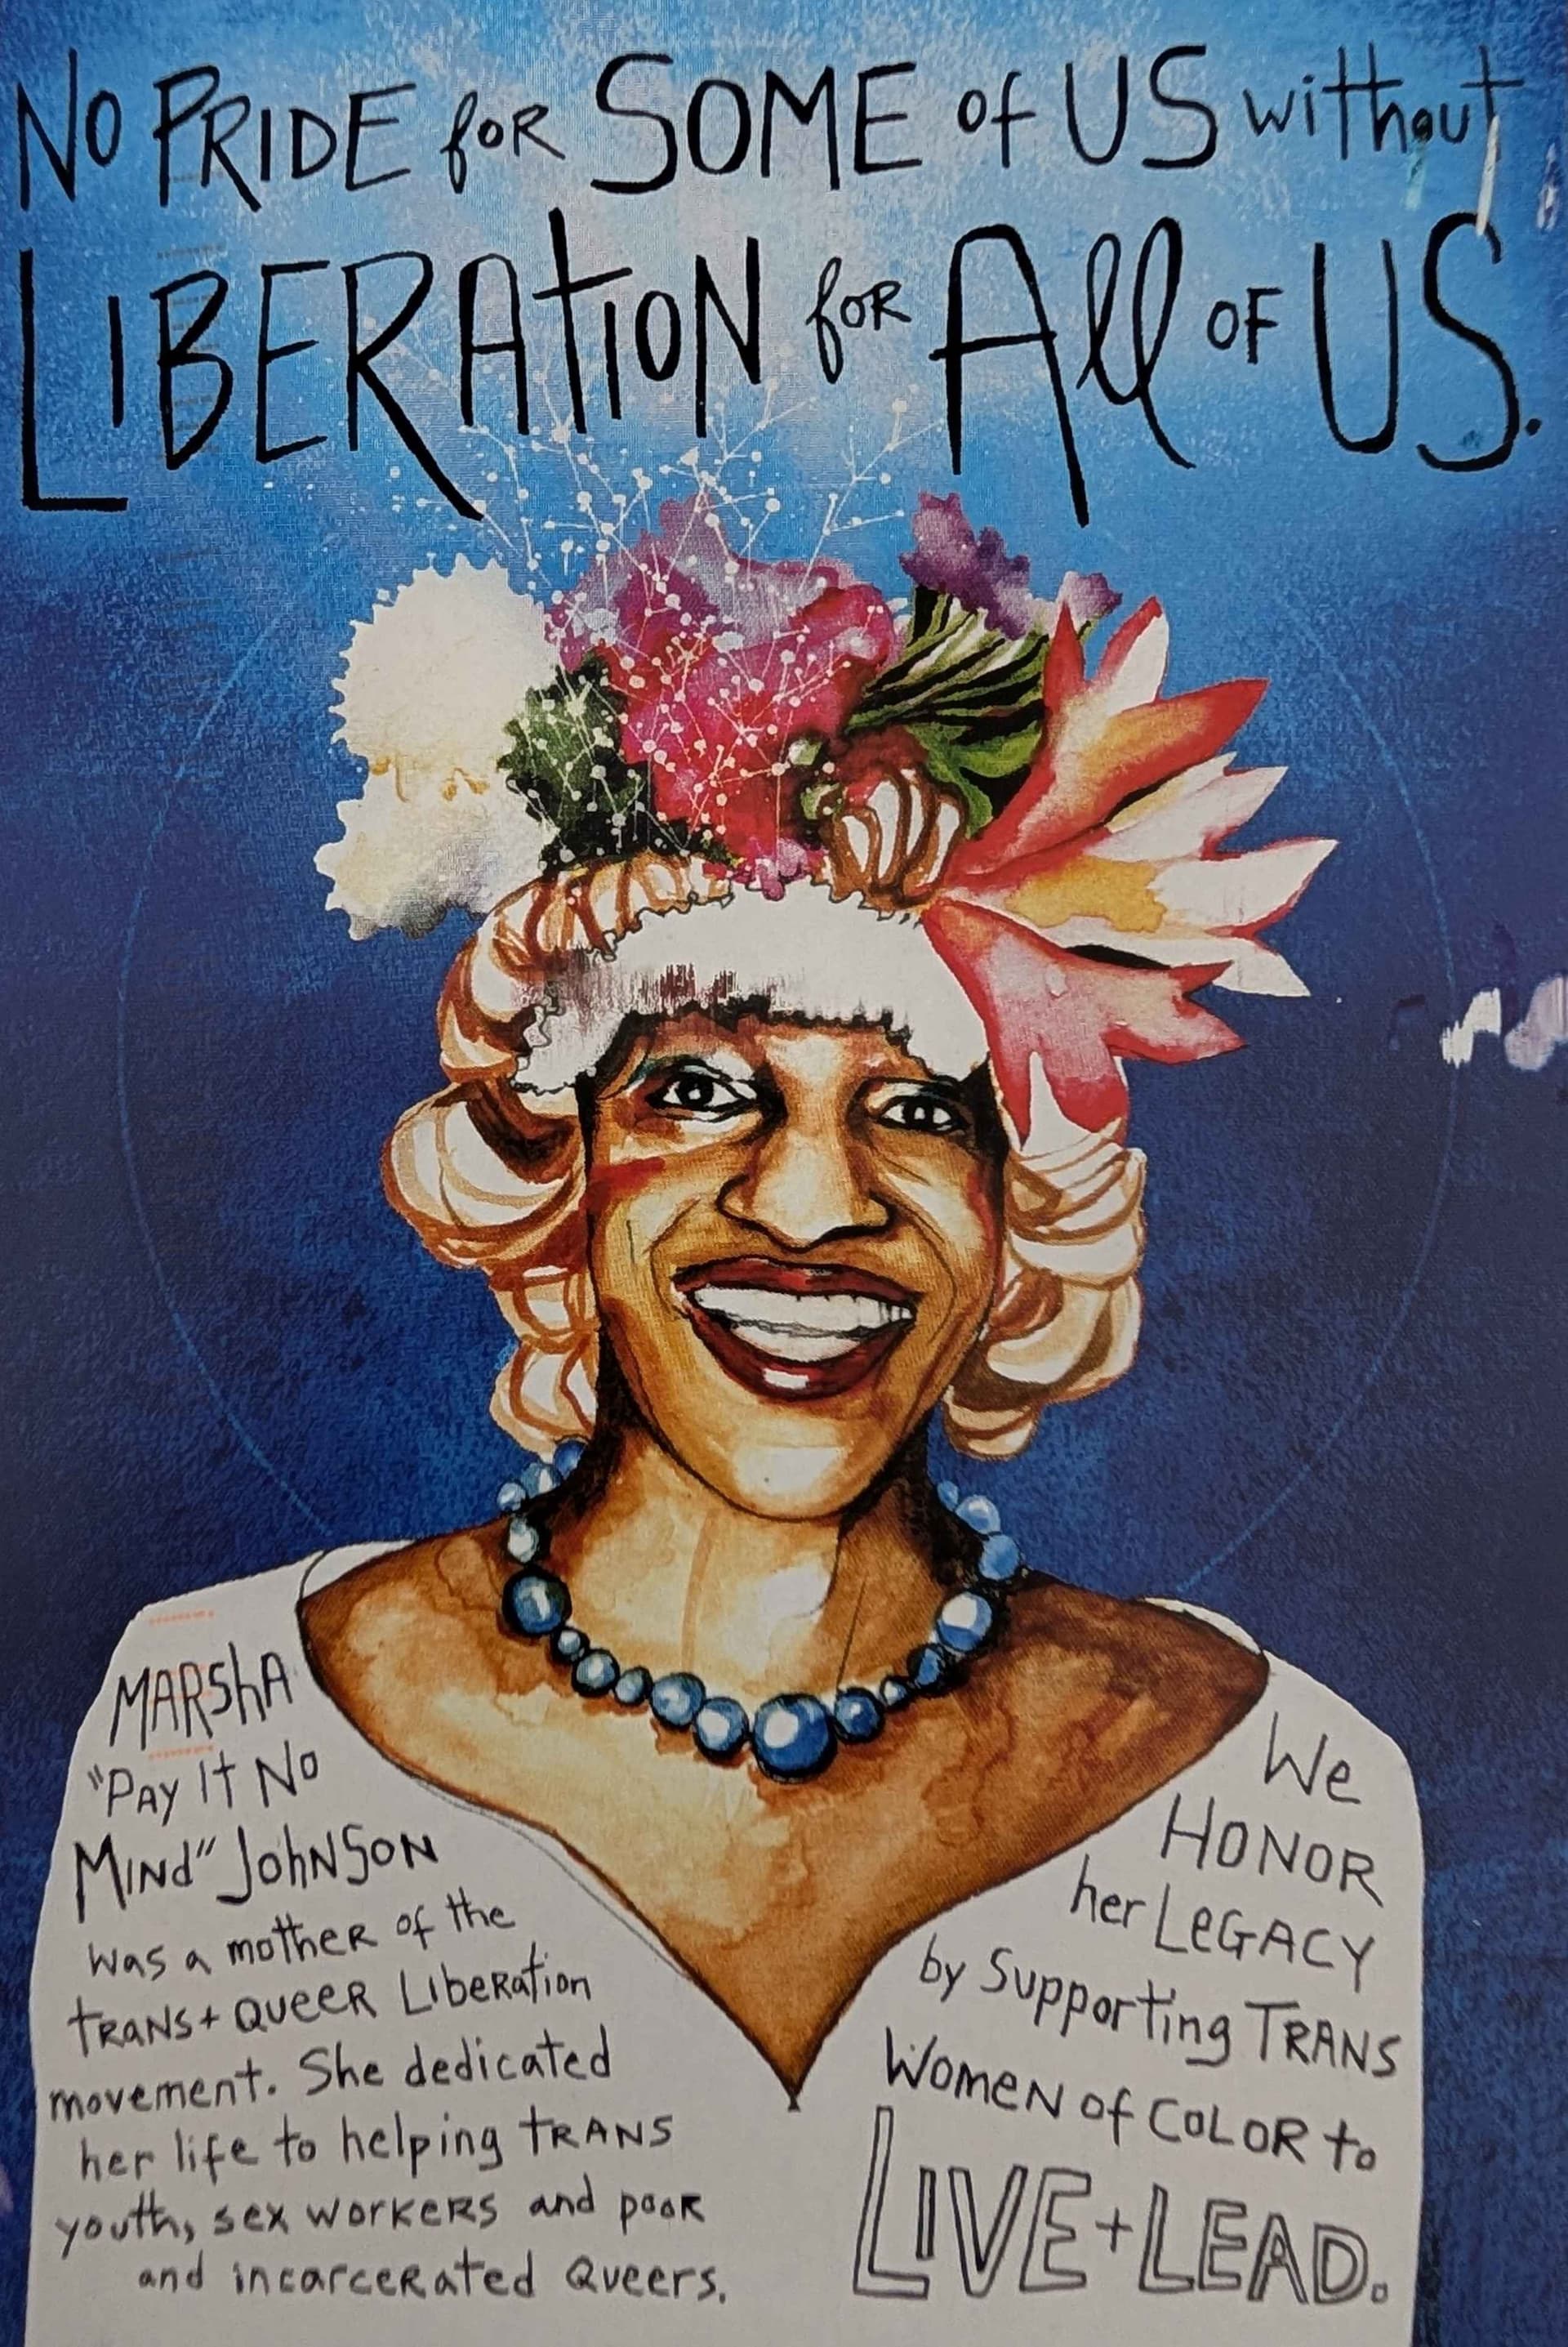 No PRIDE for SOME of US without
LIBERATION for All OF US.
MARShA
"PAY It No
MINd" JohNSON
was a mother of the
tRANS+ QUEER LIbeRation
movement. She dedicated
her life to helping tRANS
youth, sex workers and pooR
and incarceRated Queers.
We
HONOR
her LeGACY
by Supporting TRANS
WomeN of COLOR to
LIVE + LEAD.